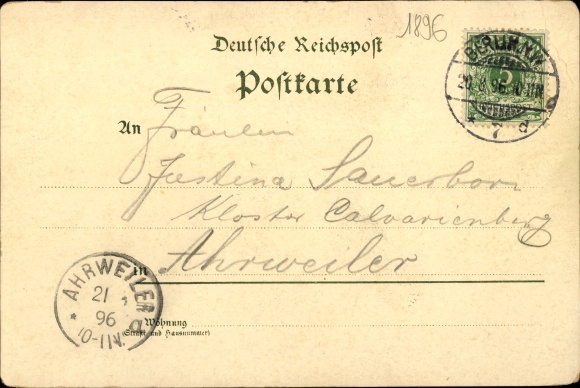 1896
Deutsche Reichspost
Postkarte
BERLIN N.W.
20 8 96 10-11N
* 7 d
An Fräulein
Justina Sauerborn
Kloster Calvarienberg
in Ahrweiler
AHRWEILER
21
96
10-11N.
Wohnung
(Straße und Hausnummer)